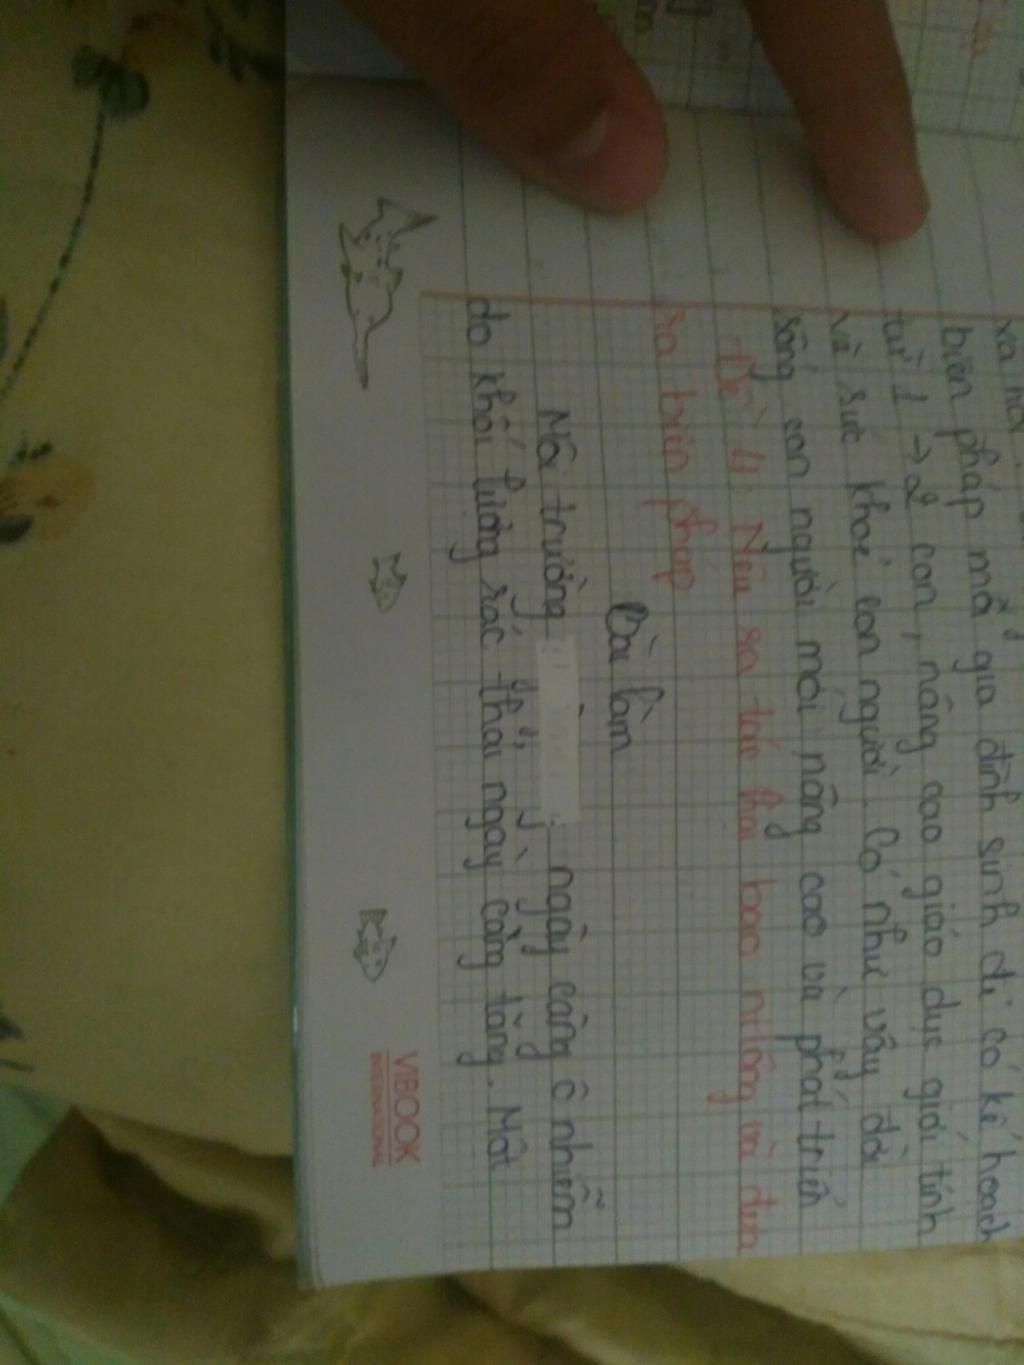 biện pháp mỗi gia đình sinh đẻ có kế hoạch
từ 1 → 2 con, nâng cao giáo dục giới tính
và sức khoẻ con người. Có như vậy đời
sống con người mới nâng cao và phát triển
Đề 4: Nêu ra tác hại bao nilông và đưa
ra biện pháp
Bài làm
Môi trường ngày càng ô nhiễm
do khối lượng rác thải ngày càng tăng. Một
VIBOOK
INTERNATIONAL